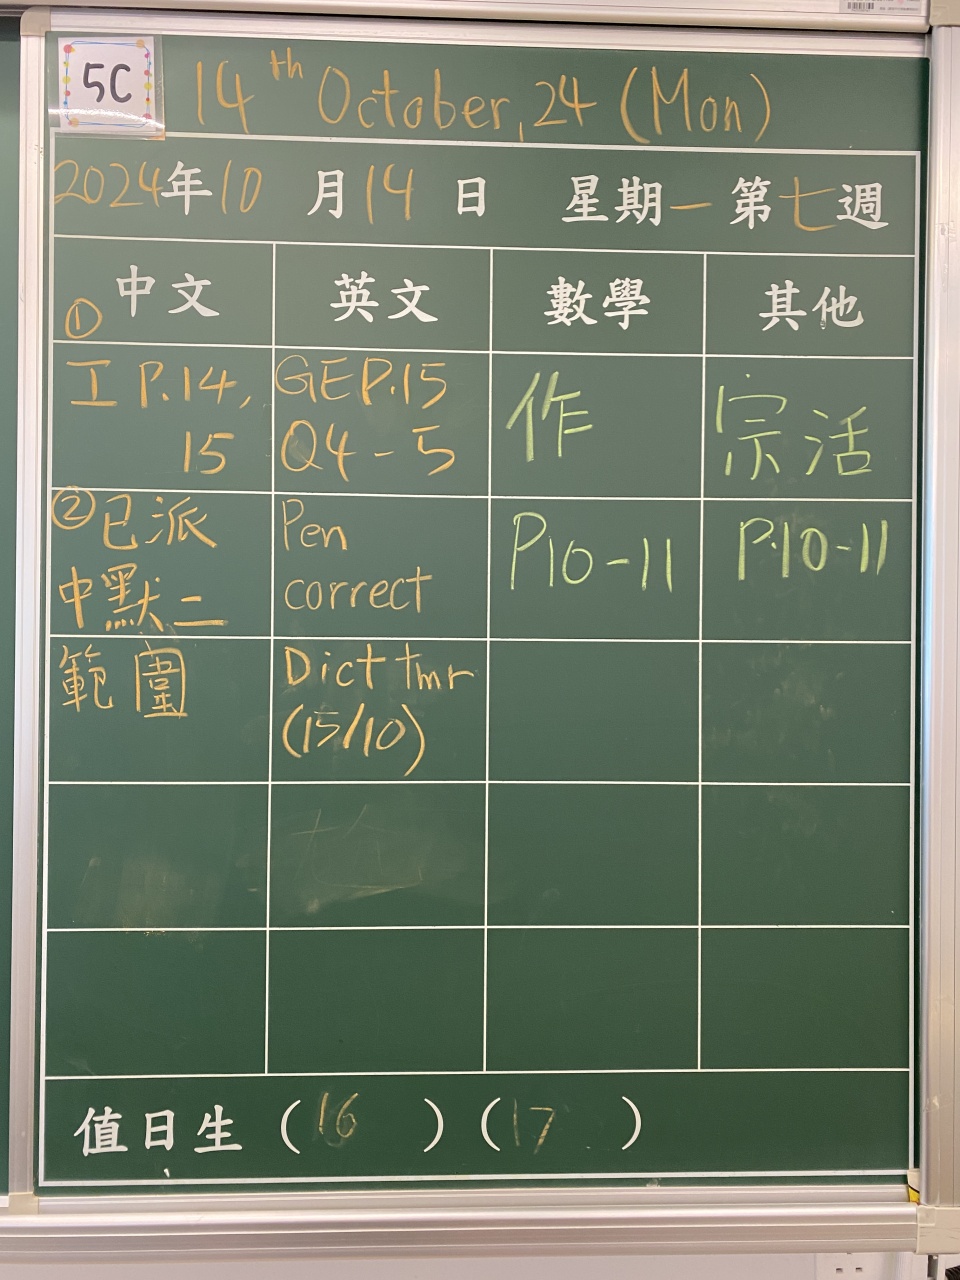 5C
14th October, 24 (Mon)
2024年10月14日 星期一 第七週
中文 英文 數學 其他
①
工 P.14, GE P.15 作 宗活
15 Q4-5
②已派 Pen P10-11 P.10-11
中默二 correct
範圍 Dict tmr
(15/10)
值日生 (16) (17)